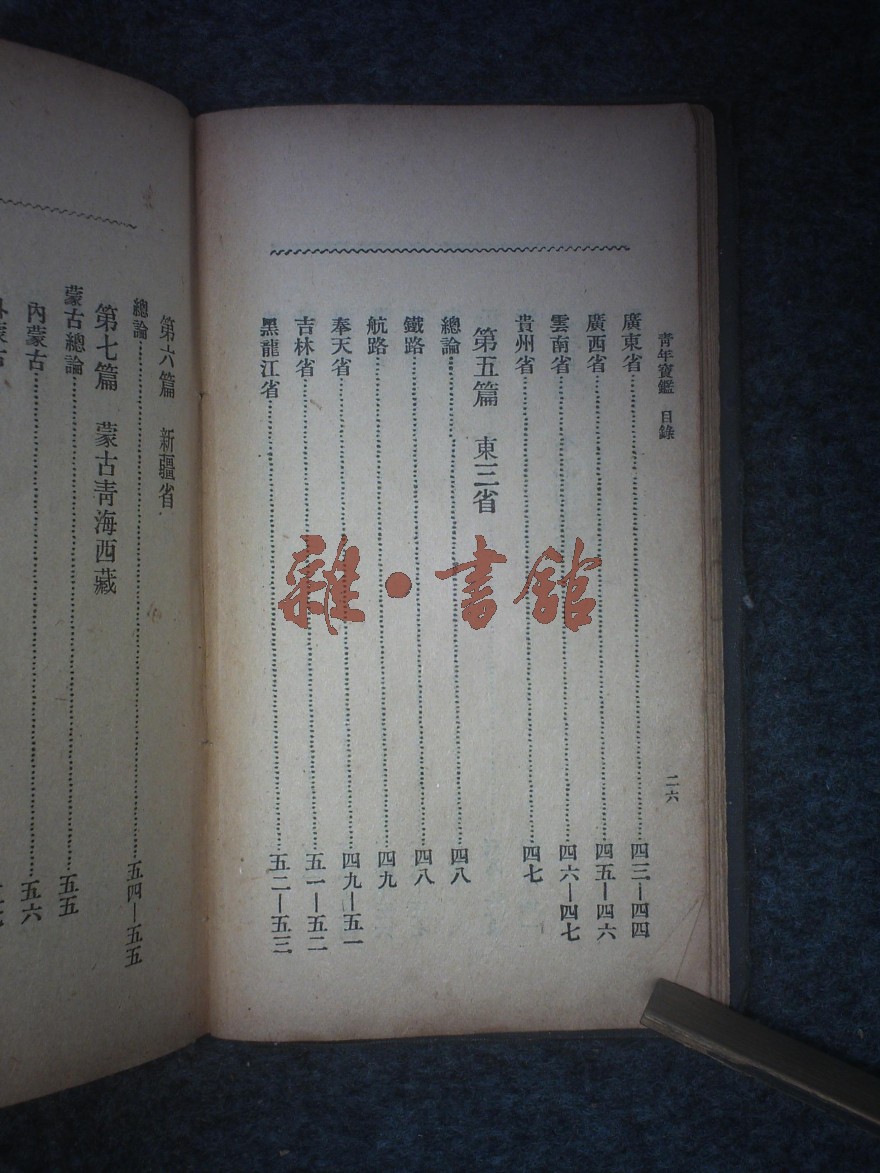 青年寶鑑 目錄
二六
廣東省 四三—四四
廣西省 四五—四六
雲南省 四六—四七
貴州省 四七
第五篇 東三省
總論 四八
鐵路 四八
航路 四九
奉天省 四九—五一
吉林省 五一—五二
黑龍江省 五二—五三
雜·書館
第六篇 新疆省
總論 五四—五五
第七篇 蒙古靑海西藏
蒙古總論 五五
內蒙古 五六